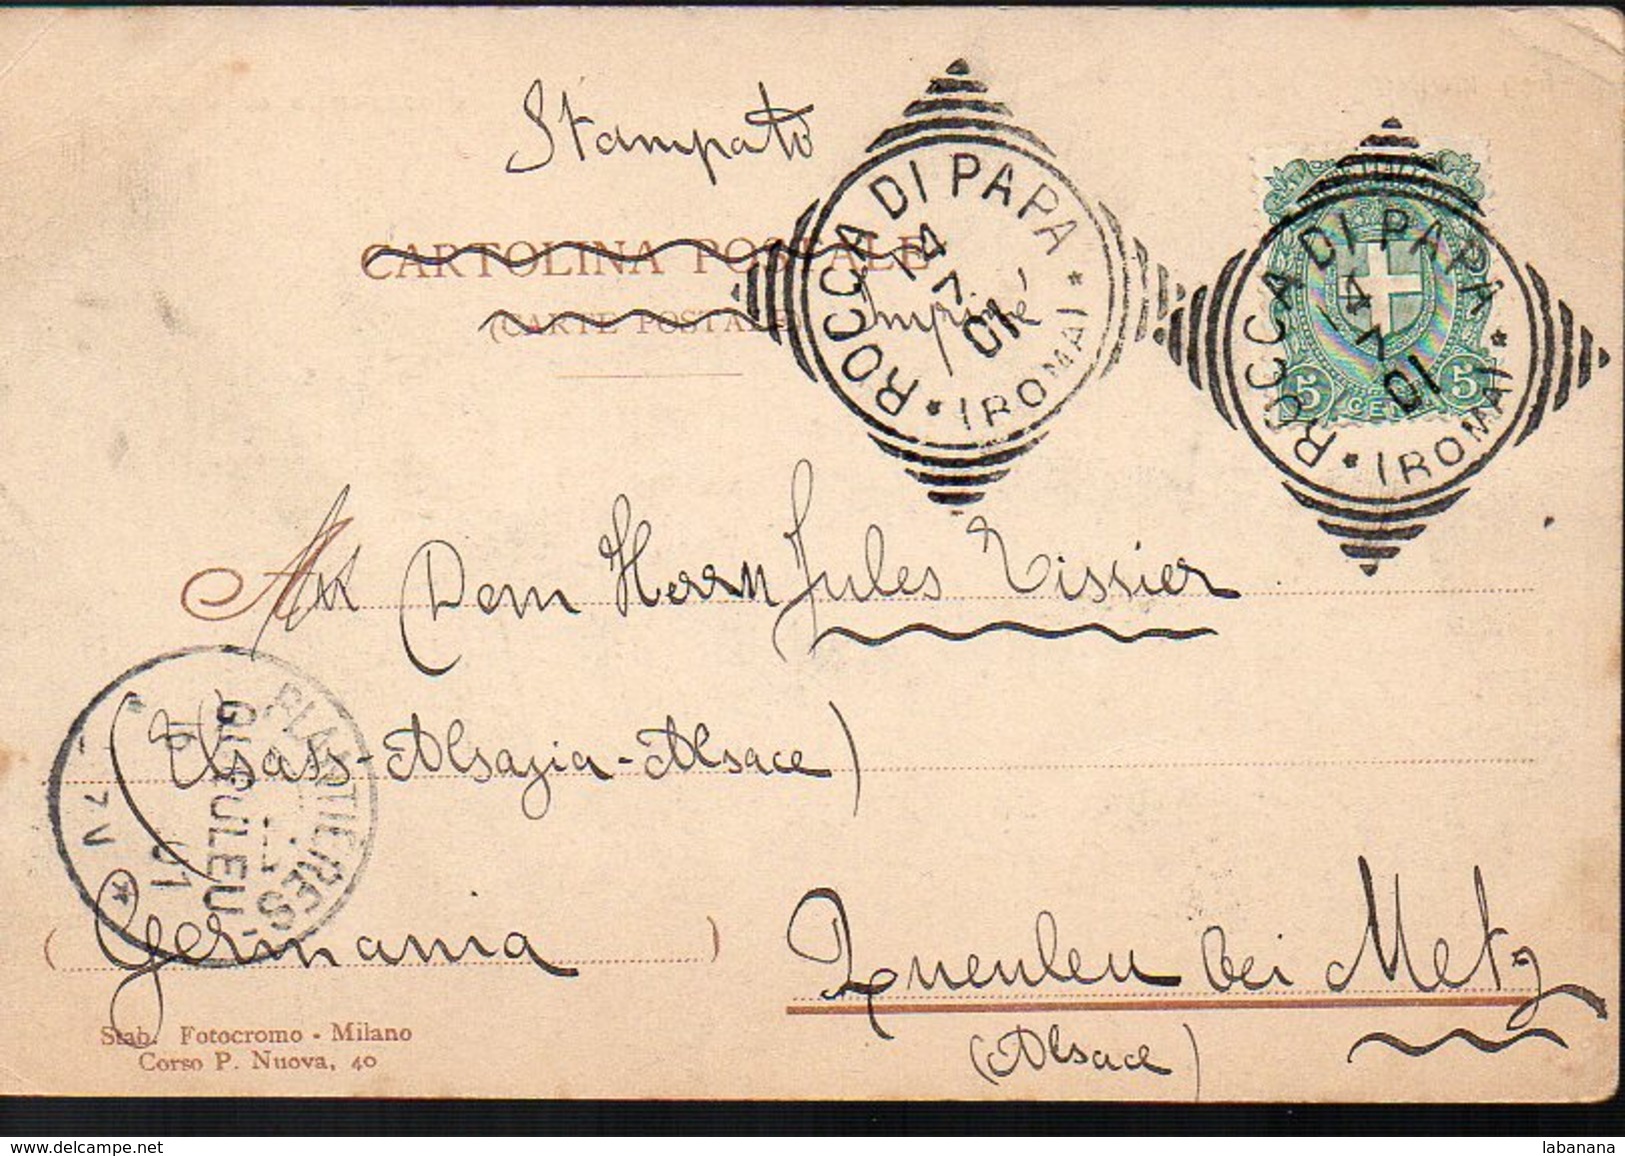 Stampato
CARTOLINA POSTALE
(CARTE POSTALE)
Imprimé
ROCCA DI PAPA
14
7
01
* (ROMA) *
ROCCA DI PAPA
14
7
01
* (ROMA) *
5 CENT 5
An Dem Herrn Jules Tissier
(Elsass-Alsazia-Alsace)
PLANTIERES
QUEULEU
16
7 V
01
(Germania)
Queuleu bei Metz
(Alsace)
Stab. Fotocromo - Milano
Corso P. Nuova, 40
delcampe.net
labanana